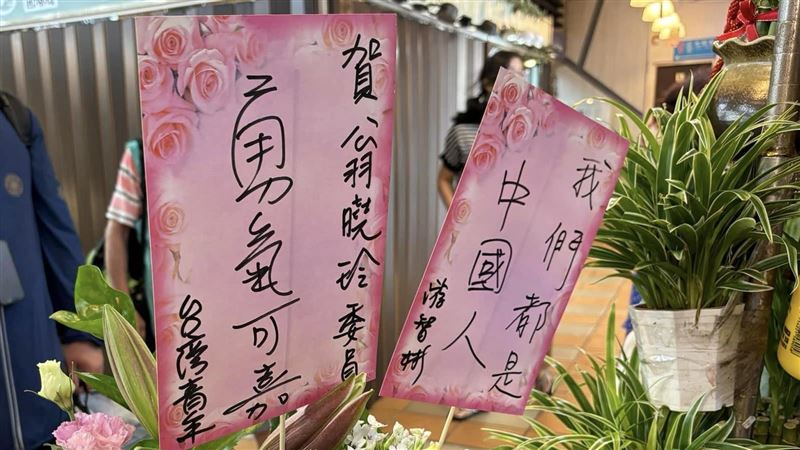 賀翁曉玲委員
勇氣可嘉
台灣青年
我們都是
中國人
游智彬